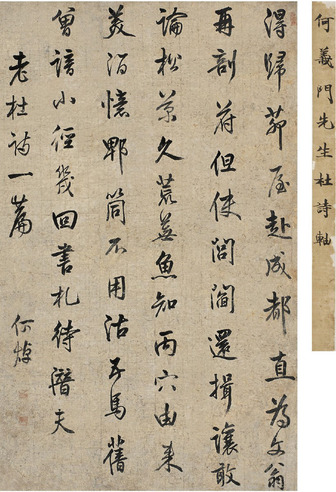 何義門先生杜詩軸
得歸茅屋赴成都直為文翁
再剖符但使閭閻還揖讓敢
論松菊久荒蕪魚知丙穴由来
美酒憶郫筒不用沽五馬舊
曾諳小徑幾回書札待潛夫
老杜詩一篇
何焯